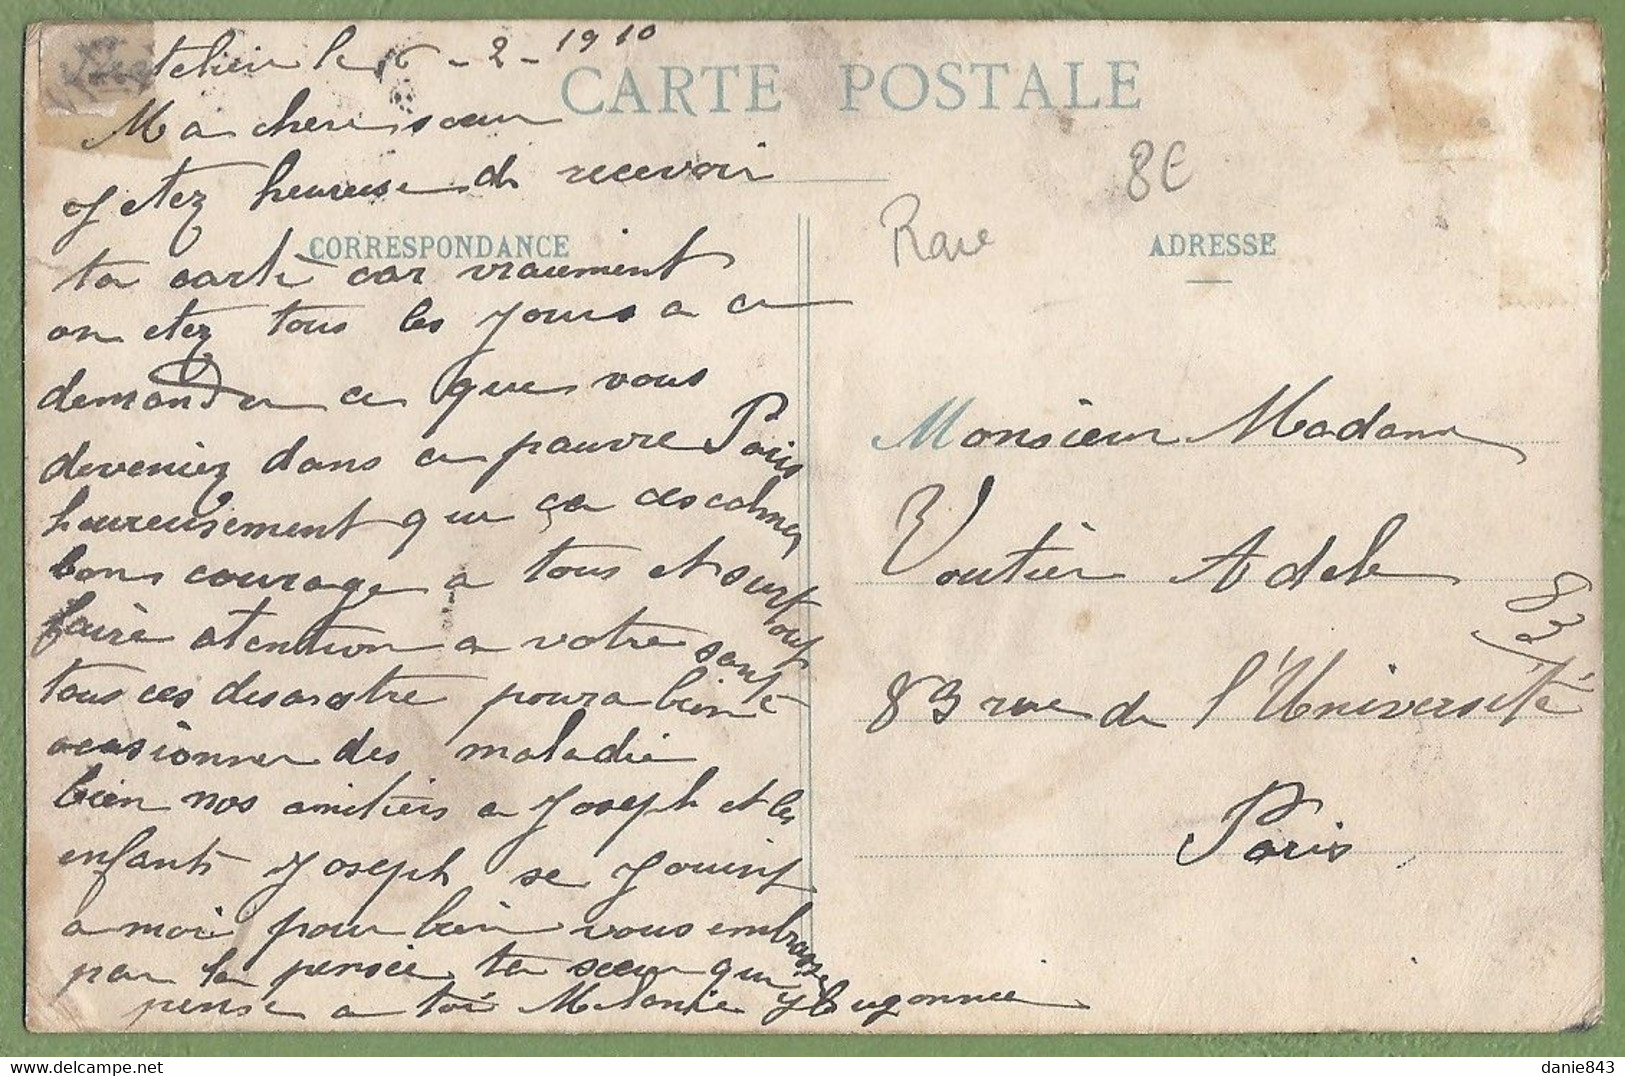 telier le 6 - 2 - 1910
CARTE POSTALE
Ma chere sœur
8€
J etez heureuse de recevoir
Rare
CORRESPONDANCE
ADRESSE
ta carte car vraiement
on etez tous les jours a ce
demander ce que vous
deveniez dans ce pauvre Paris
heureusement que ça ces calmer
bons courage a tous et surtout
faire atention a votre santé
tous ces desarstre poura bien
ocasionner des maladie
bien nos amitiers a Joseph et les
enfants Joseph se Jouint
a moi pour bien vous embrasse
par la pensée ta sœur qui
pense a toi Melanie Hugonnie
Monsieur Madame
Voutier Adele
83
83 rue de l'Université
Paris
danie843